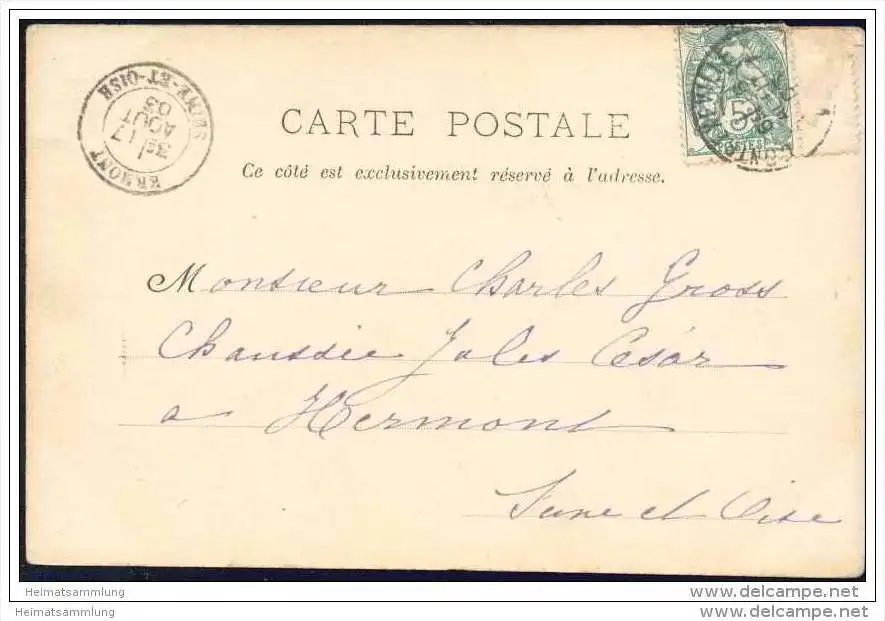 CARTE POSTALE
Ce côté est exclusivement réservé à l'adresse.
ERMONT
SEINE-ET-OISE
3E
17
AOUT
03
5
POSTES
Monsieur Charles Gross
Chaussée Jules César
a Hermont
Seine et Oise
Heimatsammlung
Heimatsammlung
www.delcampe.net
www.delcampe.net